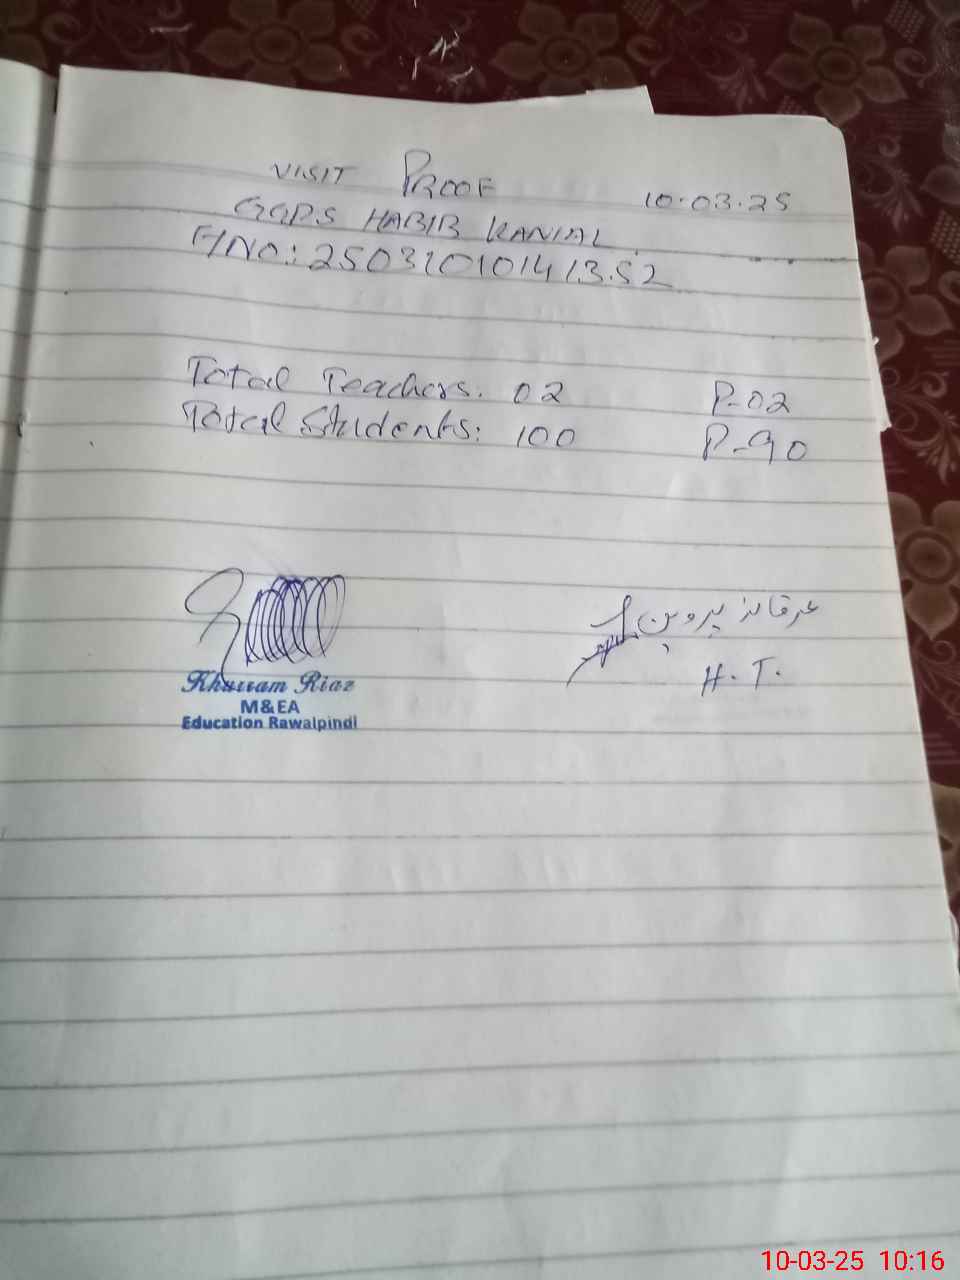 VISIT PROOF 10.03.25
GGPS HABIB KANIAL
F/NO: 25031010141352
Total Teachers: 02 P-02
Total Students: 100 P-90
پروین
H.T.
Khurram Riaz
M&EA
Education Rawalpindi
10-03-25 10:16